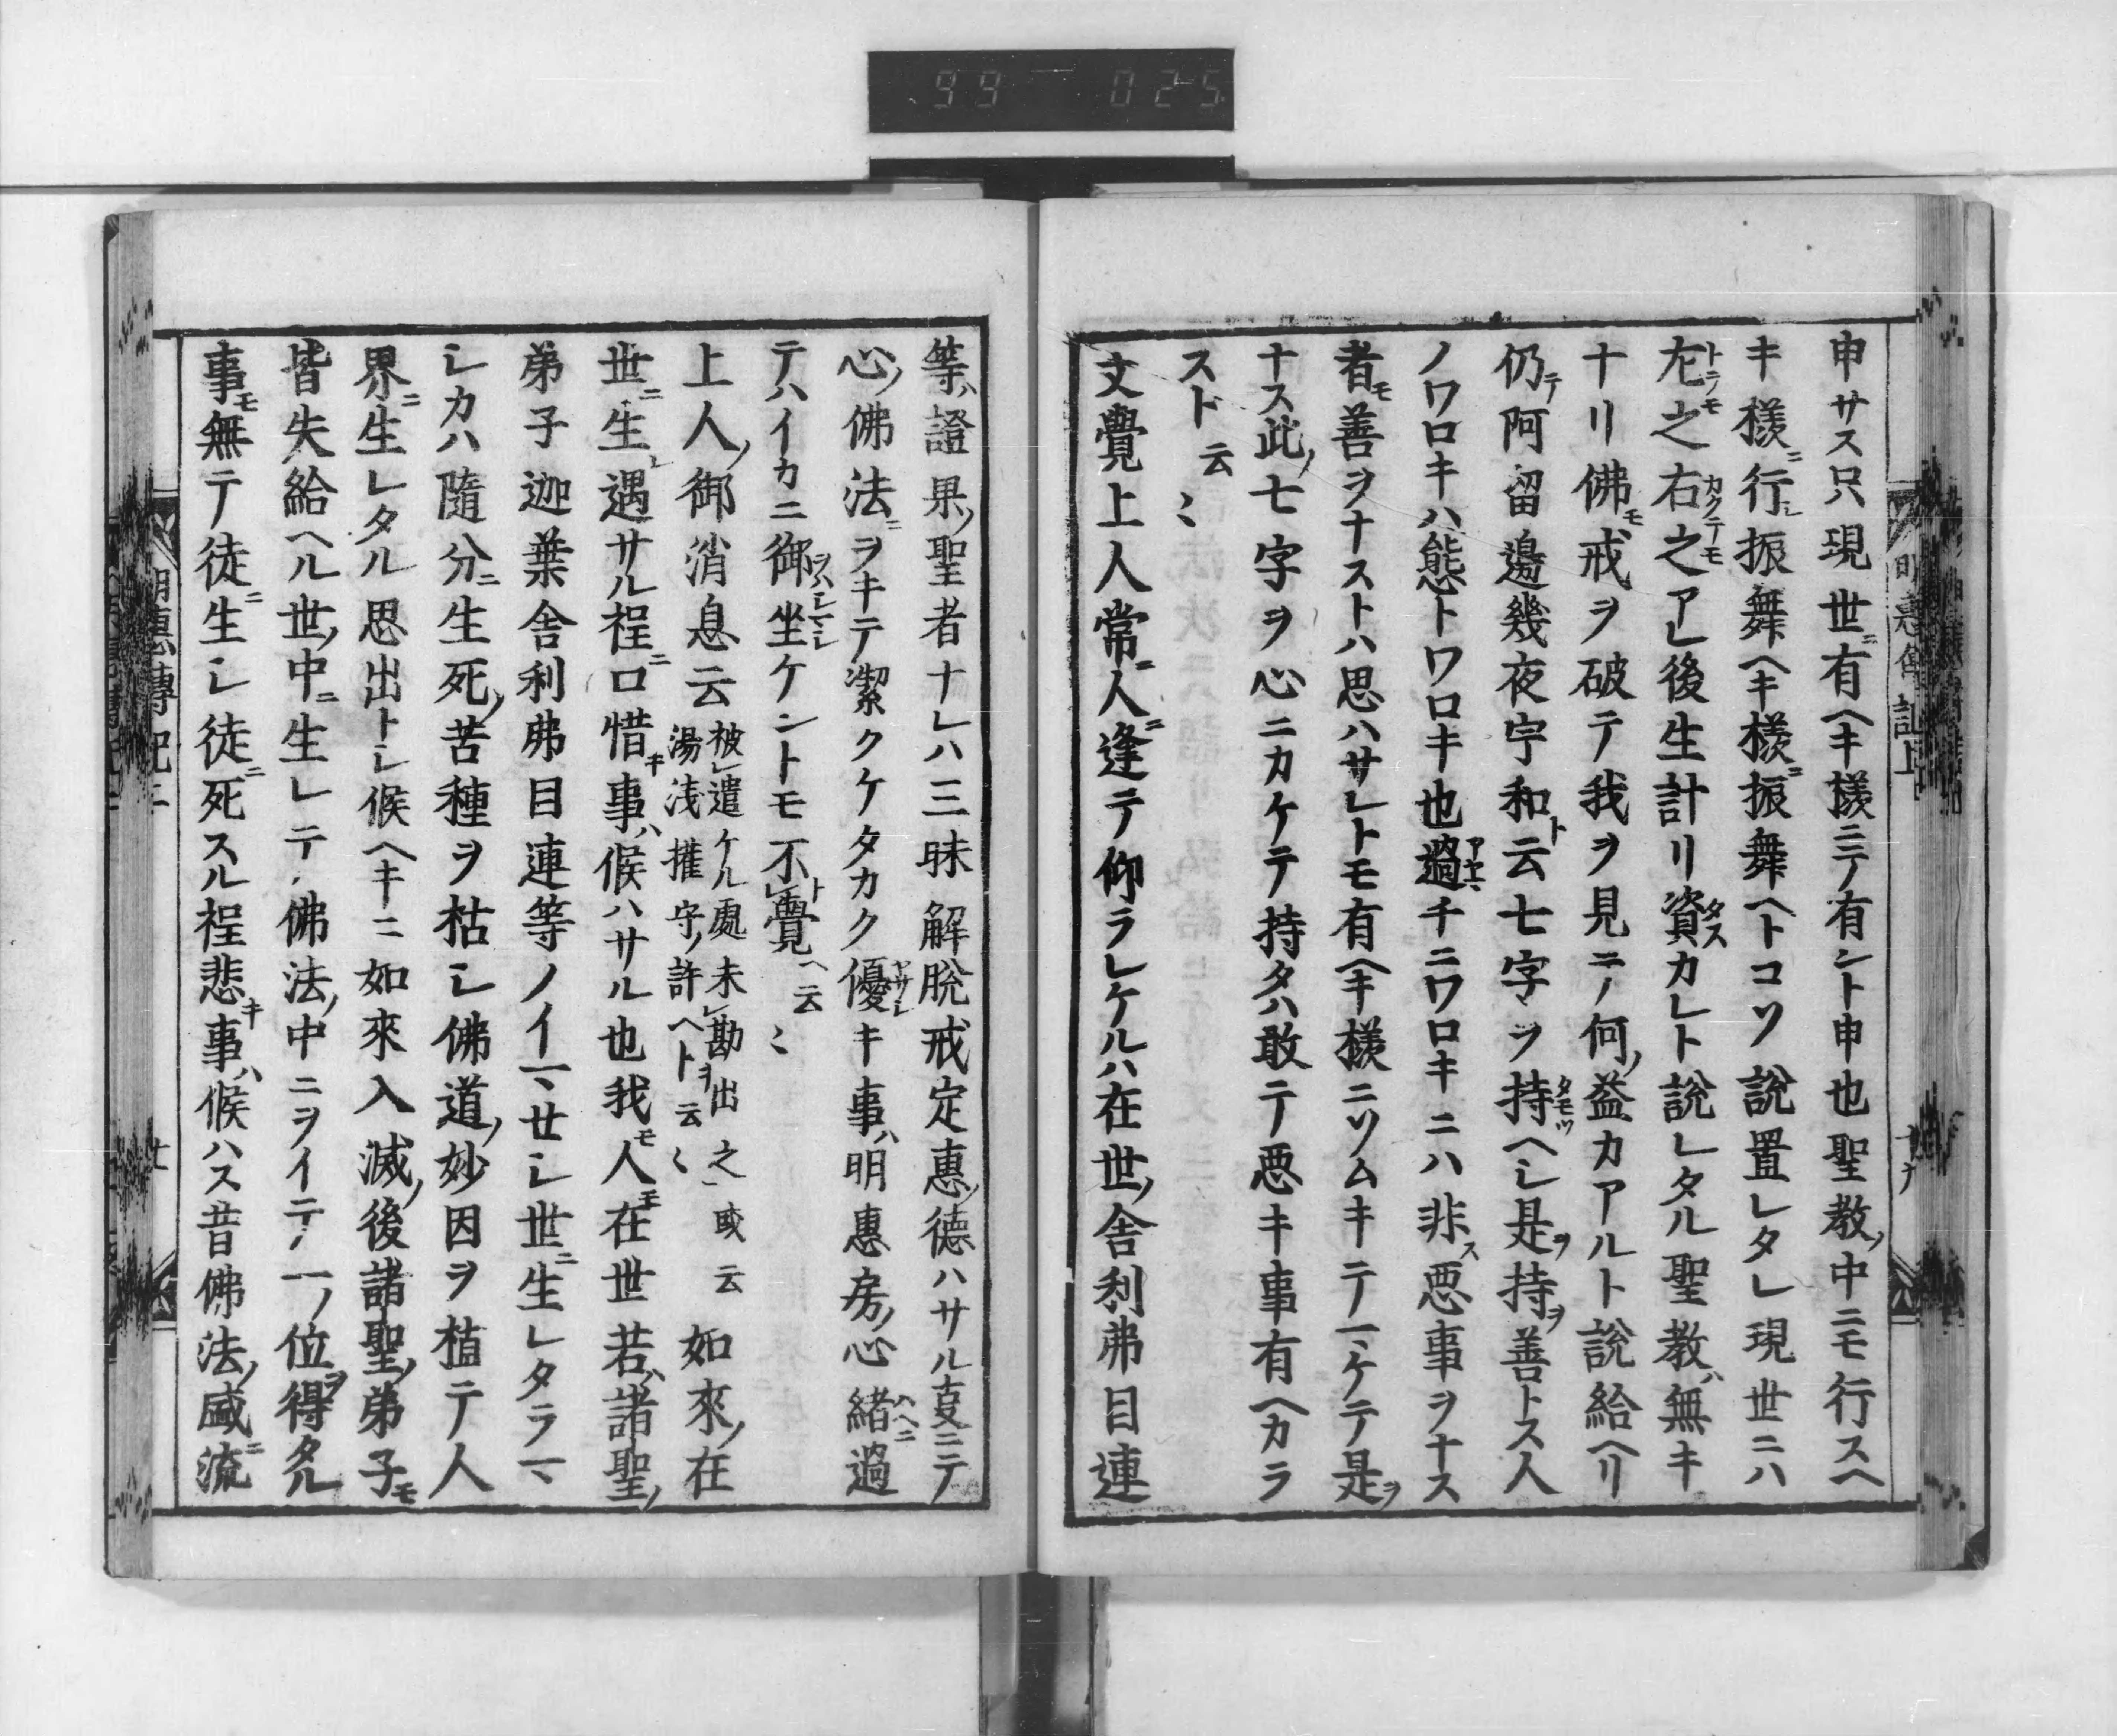 申サス只現世ニ有ヘキ様ニテ有ント申也聖教ノ中ニモ行スヘ
キ様ニ行シ振舞ヘキ様ニ振舞ヘトコソ説置レタレ現世ニハ
左之右之アレ後生計リ資カレト説レタル聖教ハ無キ
ナリ佛モ戒ヲ破テ我ヲ見テノ何ノ益カアルト説給ヘリ
仍テ阿留邊幾夜宇和ト云七字ヲ持ヘシ是ヲ持ヲ善トス人
ノワロキハ態トワロキ也過チニワロキニハ非ス悪事ヲナス
者モ善ヲナストハ思ハサレトモ有ヘキ様ニソムキテマケテ是ヲ
ナス此ノ七字ヲ心ニカケテ持タハ敢テ悪キ事有ヘカラ
スト云〻
文覺上人常ニ人ニ逢テ仰ラレケルハ在世ノ舎利弗目連
等ハ證果ノ聖者ナレハ三昧解脱戒定惠ノ徳ハサル事ニテ
心ノ佛法ニヲキテ潔クケタカク優キ事ハ明惠房ノ心緒ニ過
テハイカニ御坐ケントモ不覺ト云〻
上人ノ御消息云 被遣ケル處未勘出之或云湯浅權守ノ許ヘト云〻 如來ノ在
世ニ生レ遇サル程ニ口惜キ事ハ候ハサル也我モ人モ在世若ハ諸聖ノ
弟子迦葉舎利弗目連等ノイマセシ世ニ生レタラマ
シカハ隨分ニ生死ノ苦種ヲ枯シ佛道ノ妙因ヲ植テ人
界ニ生レタル思出トシ候ヘキニ如來入滅ノ後諸聖ノ弟子モ
皆失給ヘル世ノ中ニ生レテ佛法ノ中ニヲイテノ一ノ位ヲ得タル
事モ無テ徒ニ生シ徒ニ死スル程悲キ事ハ候ハス昔佛法ノ盛ニ流